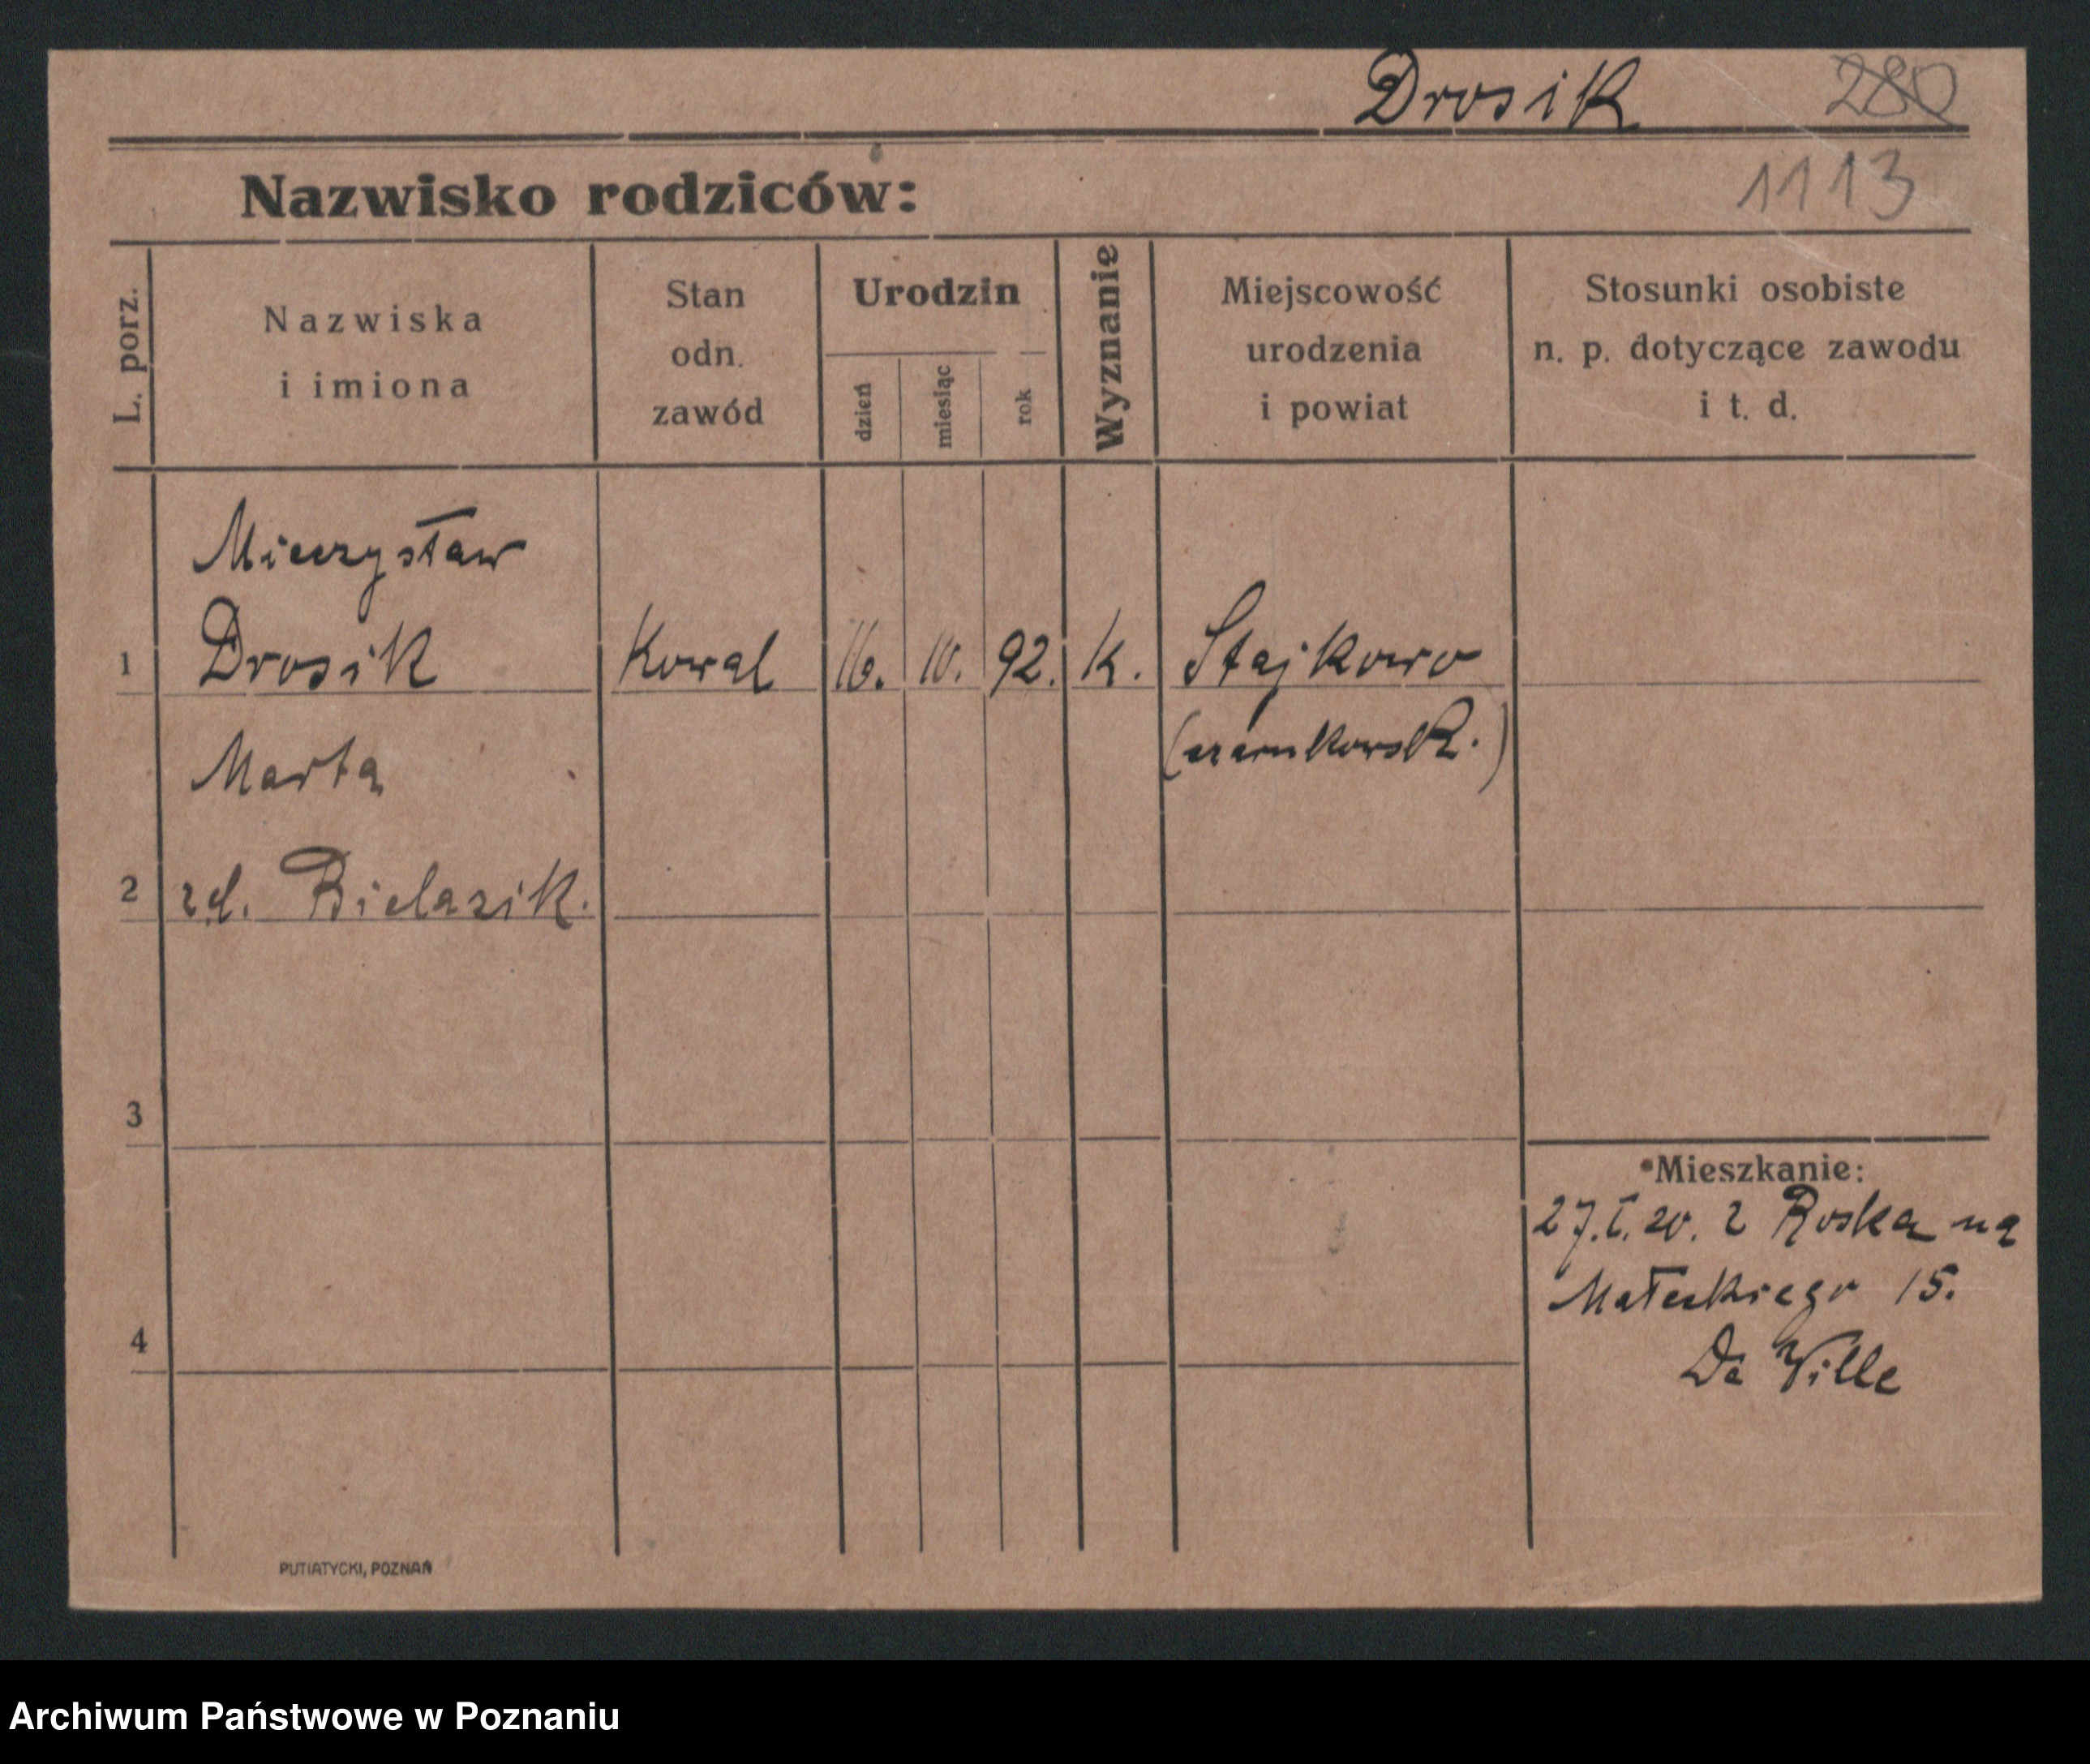 Drosik 280
1113
Nazwisko rodziców:
L. porz.
Nazwiska
i imiona
Stan
odn.
zawód
Urodzin
dzień
miesiąc
rok
Wyznanie
Miejscowość
urodzenia
i powiat
Stosunki osobiste
n. p. dotyczące zawodu
i t. d.
Mieczysław
1 Drosik Kowal 16. 10. 92. k. Stajkowo
(czarnkowsk.)
Marta
2 zd. Bielazik.
3
Mieszkanie:
27.I.20. z Roska na
Małeckiego 15.
4
De Wille
PUTIATYCKI, POZNAŃ
Archiwum Państwowe w Poznaniu